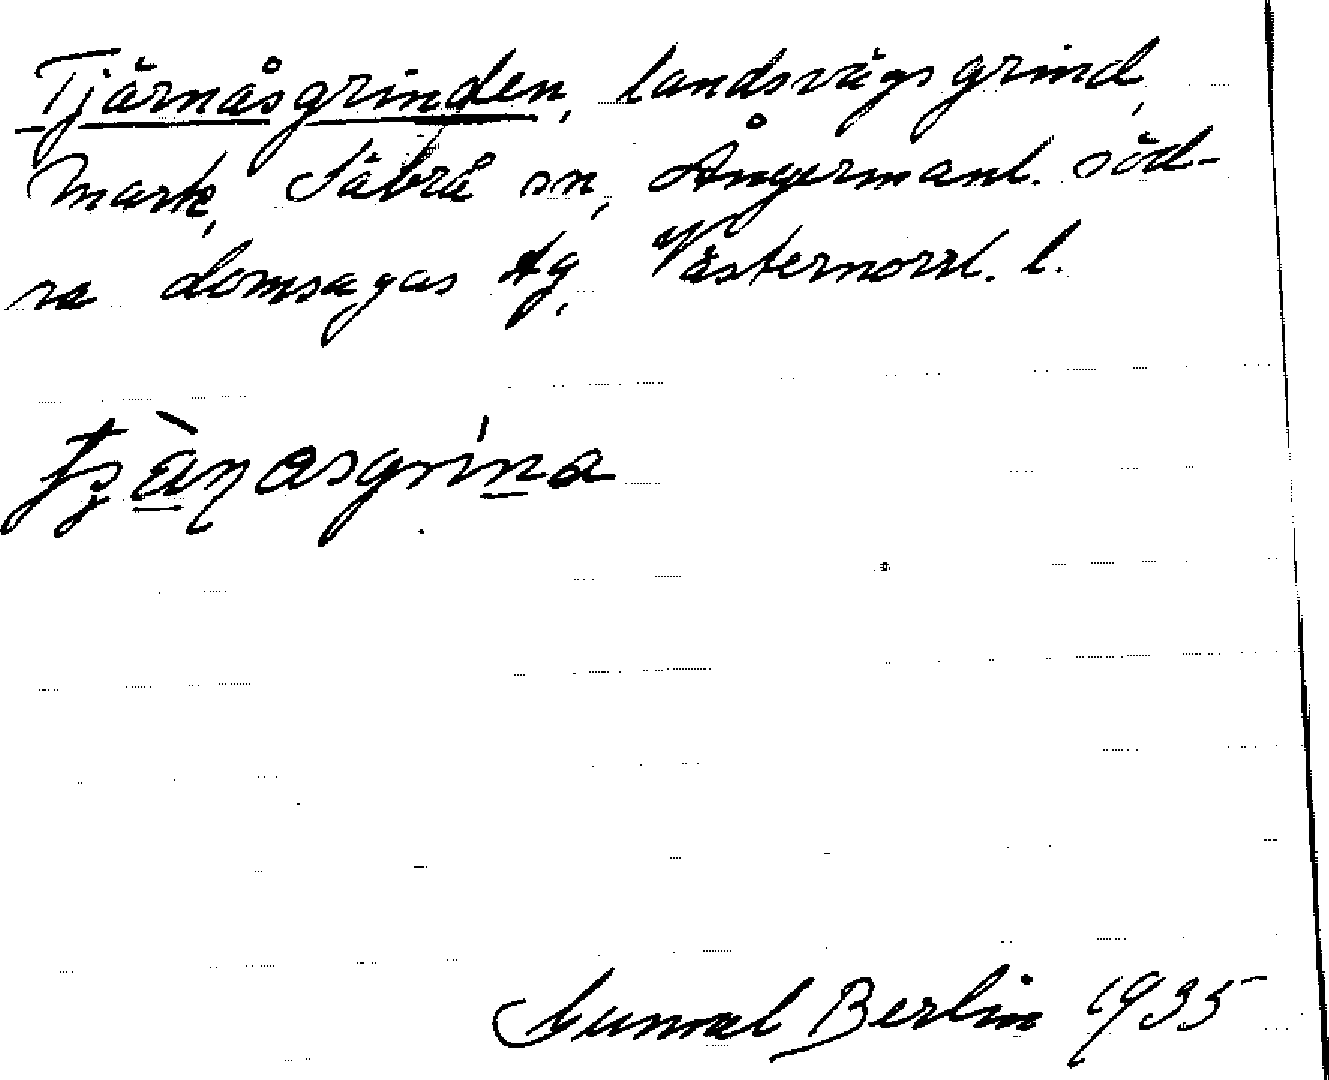 Tjärnåsgrinden, landsvägsgrind,
Mark, Säbrå sn, Ångermanl. söd-
ra domsagas tg, Västernorrl. l.
Gunnel Berlin 1935